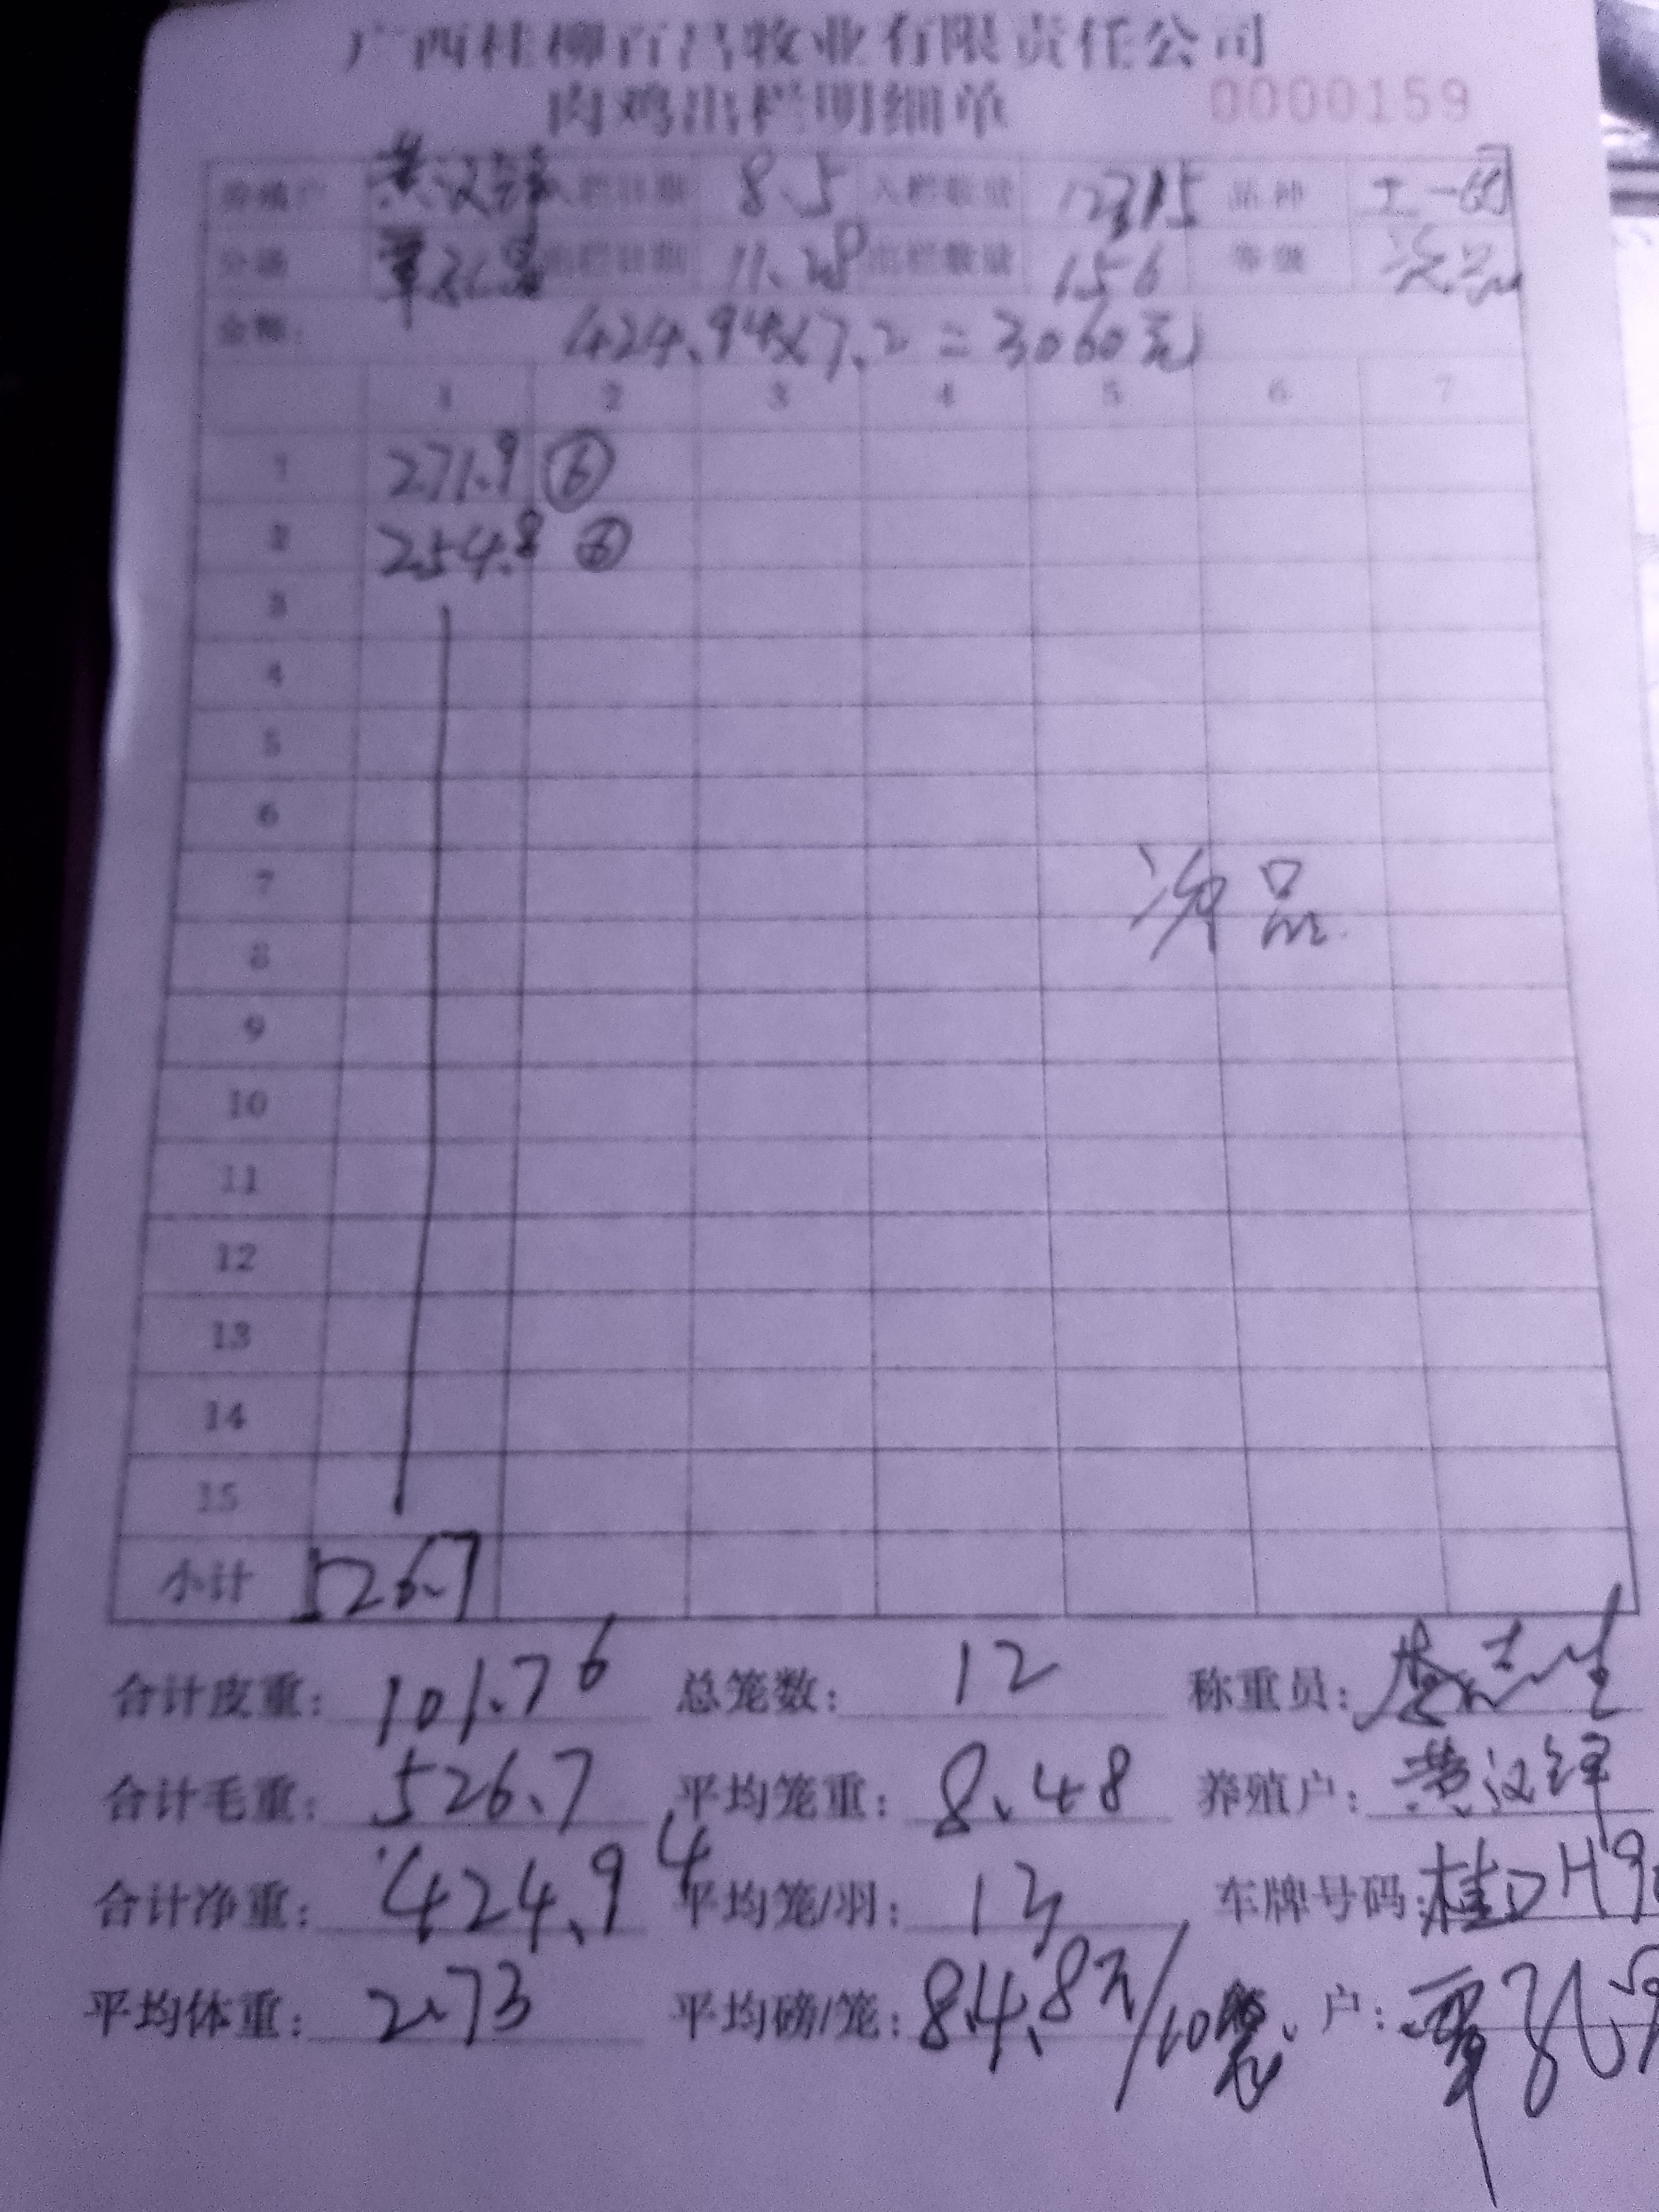 广西桂柳百昌牧业有限责任公司
肉鸡出栏明细单 0000159
养殖户 黄汉锋 入栏日期 8.5 入栏数量 12315 品种 土一
分场 出栏日期 11.28 出栏数量 156 等级 次品
金额: 424.94×7.2=3060元
1 2 3 4 5 6 7
1 271.9 ⑥
2 254.8 ⑥
3
4
5
6
7 次品
8
9
10
11
12
13
14
15
小计 526.7
合计皮重: 101.76 总笼数: 12 称重员:
合计毛重: 526.7 平均笼重: 8.48 养殖户: 黄汉锋
合计净重: 424.94 平均笼/羽: 13 车牌号码: 桂DH9
平均体重: 2.73 平均磅/笼: 84.8元/10 户: 覃